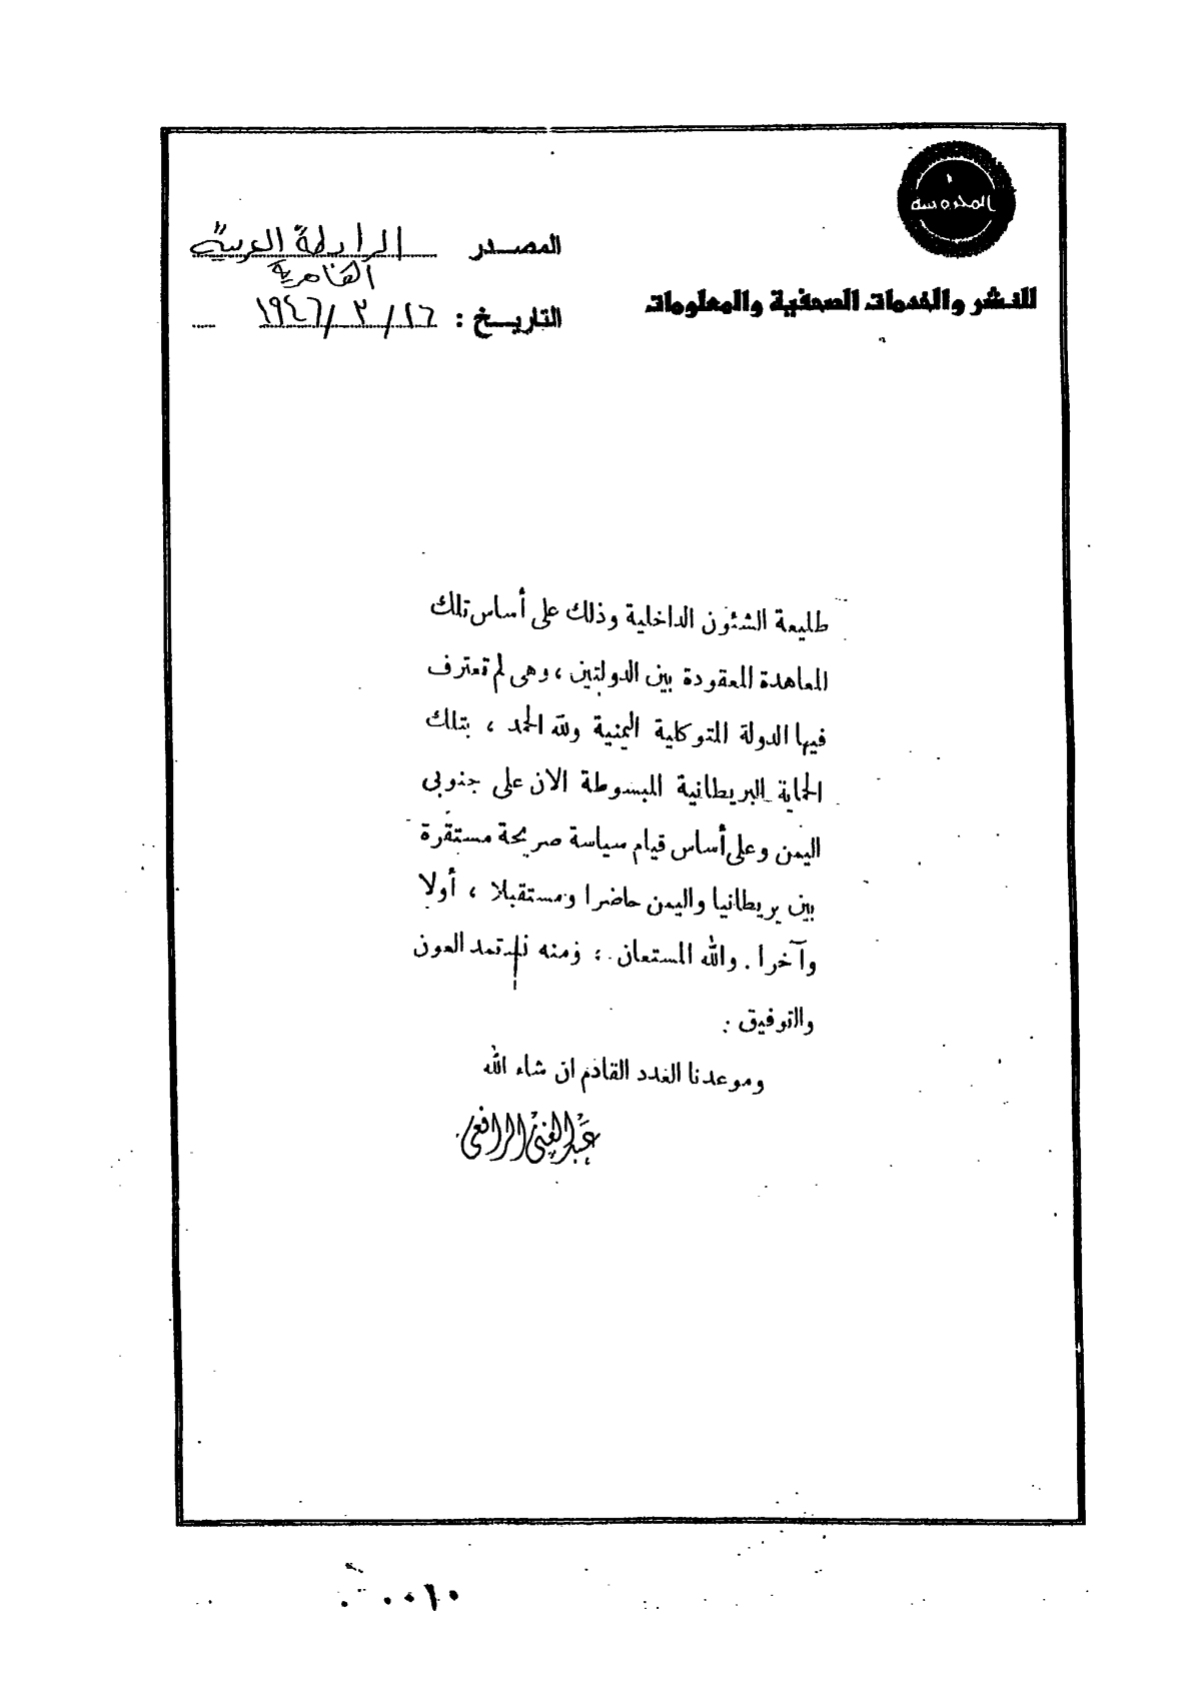 المحروسة
للنشر والخدمات الصحفية والمعلومات
المصدر الرابطة العربية
القاهرية
التاريخ : ٢٦ / ٣ / ١٩٤٦
طليعة الشئون الداخلية وذلك على أساس تلك
المعاهدة المعقودة بين الدولتين ، وهى لم تعترف
فيها الدولة المتوكلية اليمنية ولله الحمد ، بتلك
الحماية البريطانية المبسوطة الان على جنوبى
اليمن وعلى أساس قيام سياسة صريحة مستقرة
بين بريطانيا واليمن حاضرا ومستقبلا ، أولا
وآخرا . والله المستعان . ومنه نستمد العون
والتوفيق .
وموعدنا العدد القادم ان شاء الله
عبد الغنى الرافعى